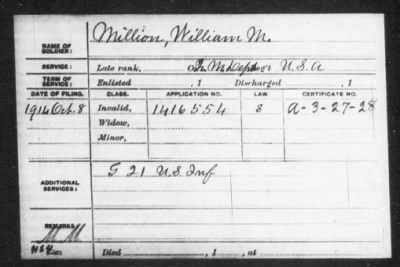 NAME OF SOLDIER: Million, William M.
SERVICE: Late rank, Q. M. Dept U.S.A
TERM OF SERVICE: Enlisted , 1 Discharged , 1
DATE OF FILING. CLASS. APPLICATION NO. LAW CERTIFICATE NO.
1914 Oct. 8 Invalid, 1416554 S A-3-27-28
Widow,
Minor,
ADDITIONAL SERVICES: S 21 U.S. Inf
REMARKS:
M. M.
Died , 1 , at